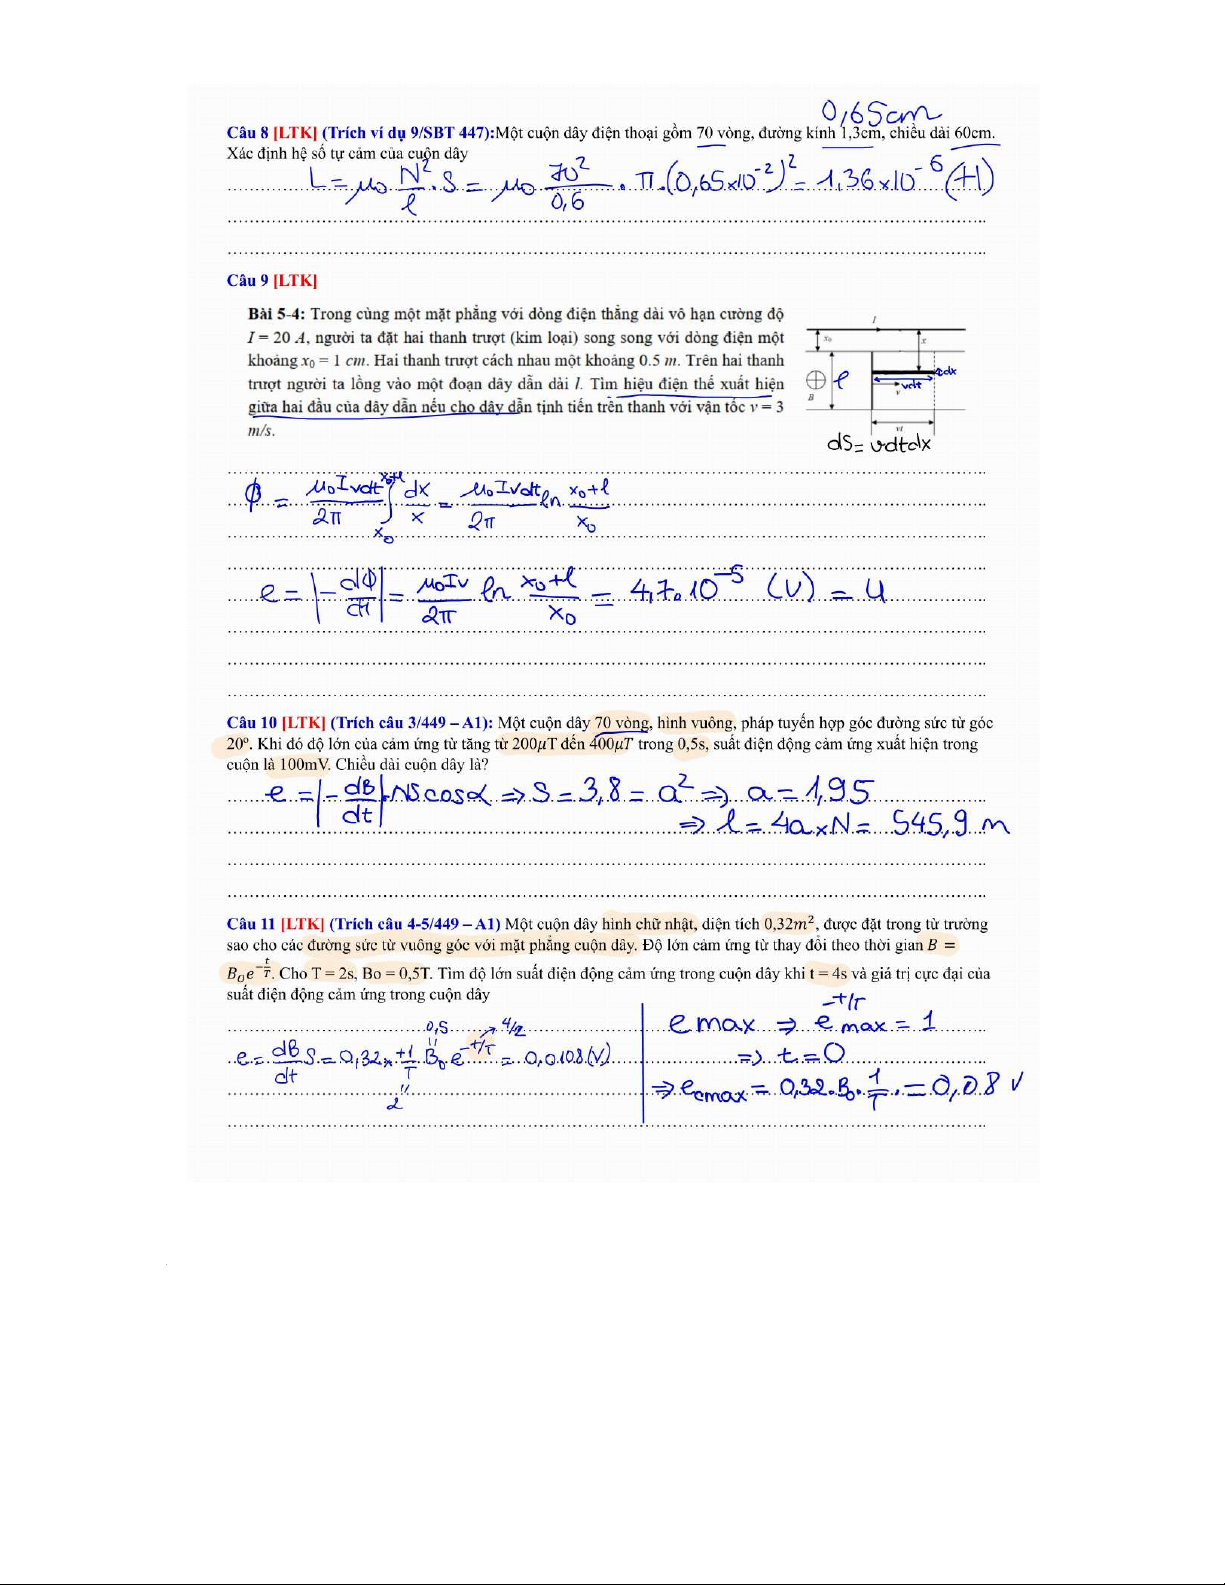 0,65cm
Câu 8 [LTK] (Trích ví dụ 9/SBT 447):Một cuộn dây điện thoại gồm 70 vòng, đường kính 1,3cm, chiều dài 60cm.
Xác định hệ số tự cảm của cuộn dây
L = μ₀ . N²/ℓ . S = μ₀ . 70²/0,6 . π.(0,65×10⁻²)² = 1,36×10⁻⁶ (H)
Câu 9 [LTK]
Bài 5-4: Trong cùng một mặt phẳng với dòng điện thẳng dài vô hạn cường độ
I = 20 A, người ta đặt hai thanh trượt (kim loại) song song với dòng điện một
khoảng x₀ = 1 cm. Hai thanh trượt cách nhau một khoảng 0.5 m. Trên hai thanh
trượt người ta lồng vào một đoạn dây dẫn dài l. Tìm hiệu điện thế xuất hiện
giữa hai đầu của dây dẫn nếu cho dây dẫn tịnh tiến trên thanh với vận tốc v = 3
m/s.
I
x₀
x
dx
ℓ
vdt
v
B
vt
dS = vdtdx
ϕ = μ₀Ivdt/2π ∫ₓ₀ˣ⁰⁺ˡ dx/x = μ₀Ivdt/2π ln (x₀+ℓ)/x₀
e = |-dϕ/dt| = μ₀Iv/2π ln (x₀+ℓ)/x₀ = 4,7.10⁻⁵ (V) = U
Câu 10 [LTK] (Trích câu 3/449 – A1): Một cuộn dây 70 vòng, hình vuông, pháp tuyến hợp góc đường sức từ góc
20°. Khi đó độ lớn của cảm ứng từ tăng từ 200μT đến 400μT trong 0,5s, suất điện động cảm ứng xuất hiện trong
cuộn là 100mV. Chiều dài cuộn dây là?
e = |-dB/dt| . NS cosα ⇒ S = 3,8 = a² ⇒ a = 1,95
⇒ ℓ = 4a×N = 545,9 m
Câu 11 [LTK] (Trích câu 4-5/449 – A1) Một cuộn dây hình chữ nhật, diện tích 0,32m², được đặt trong từ trường
sao cho các đường sức từ vuông góc với mặt phẳng cuộn dây. Độ lớn cảm ứng từ thay đổi theo thời gian B =
B₀e^(-t/T). Cho T = 2s, Bo = 0,5T. Tìm độ lớn suất điện động cảm ứng trong cuộn dây khi t = 4s và giá trị cực đại của
suất điện động cảm ứng trong cuộn dây
0,5 4/2
e = dB/dt S = 0,32 × +1/T B₀ e^(-t/T) = 0,0108 (V)
2
e max ⇒ e^(-t/T) max = 1
⇒ t = 0
⇒ e_cmax = 0,32 . B₀ . 1/T . = 0,08 V